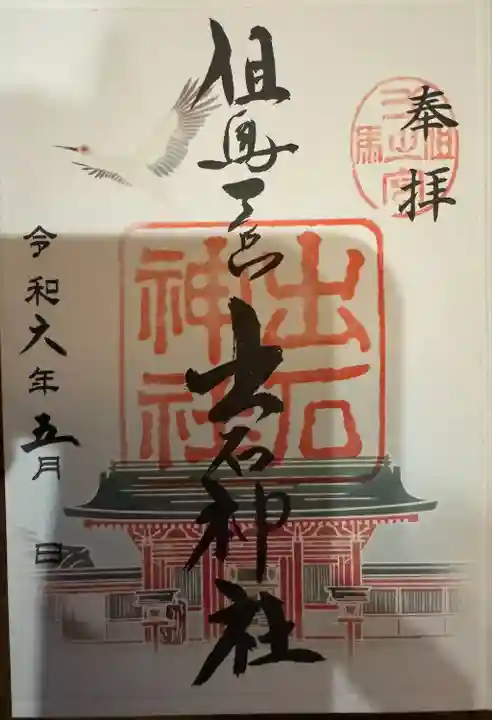 奉拝
但馬一宮
出石神社
出石
神社
令和六年五月 日